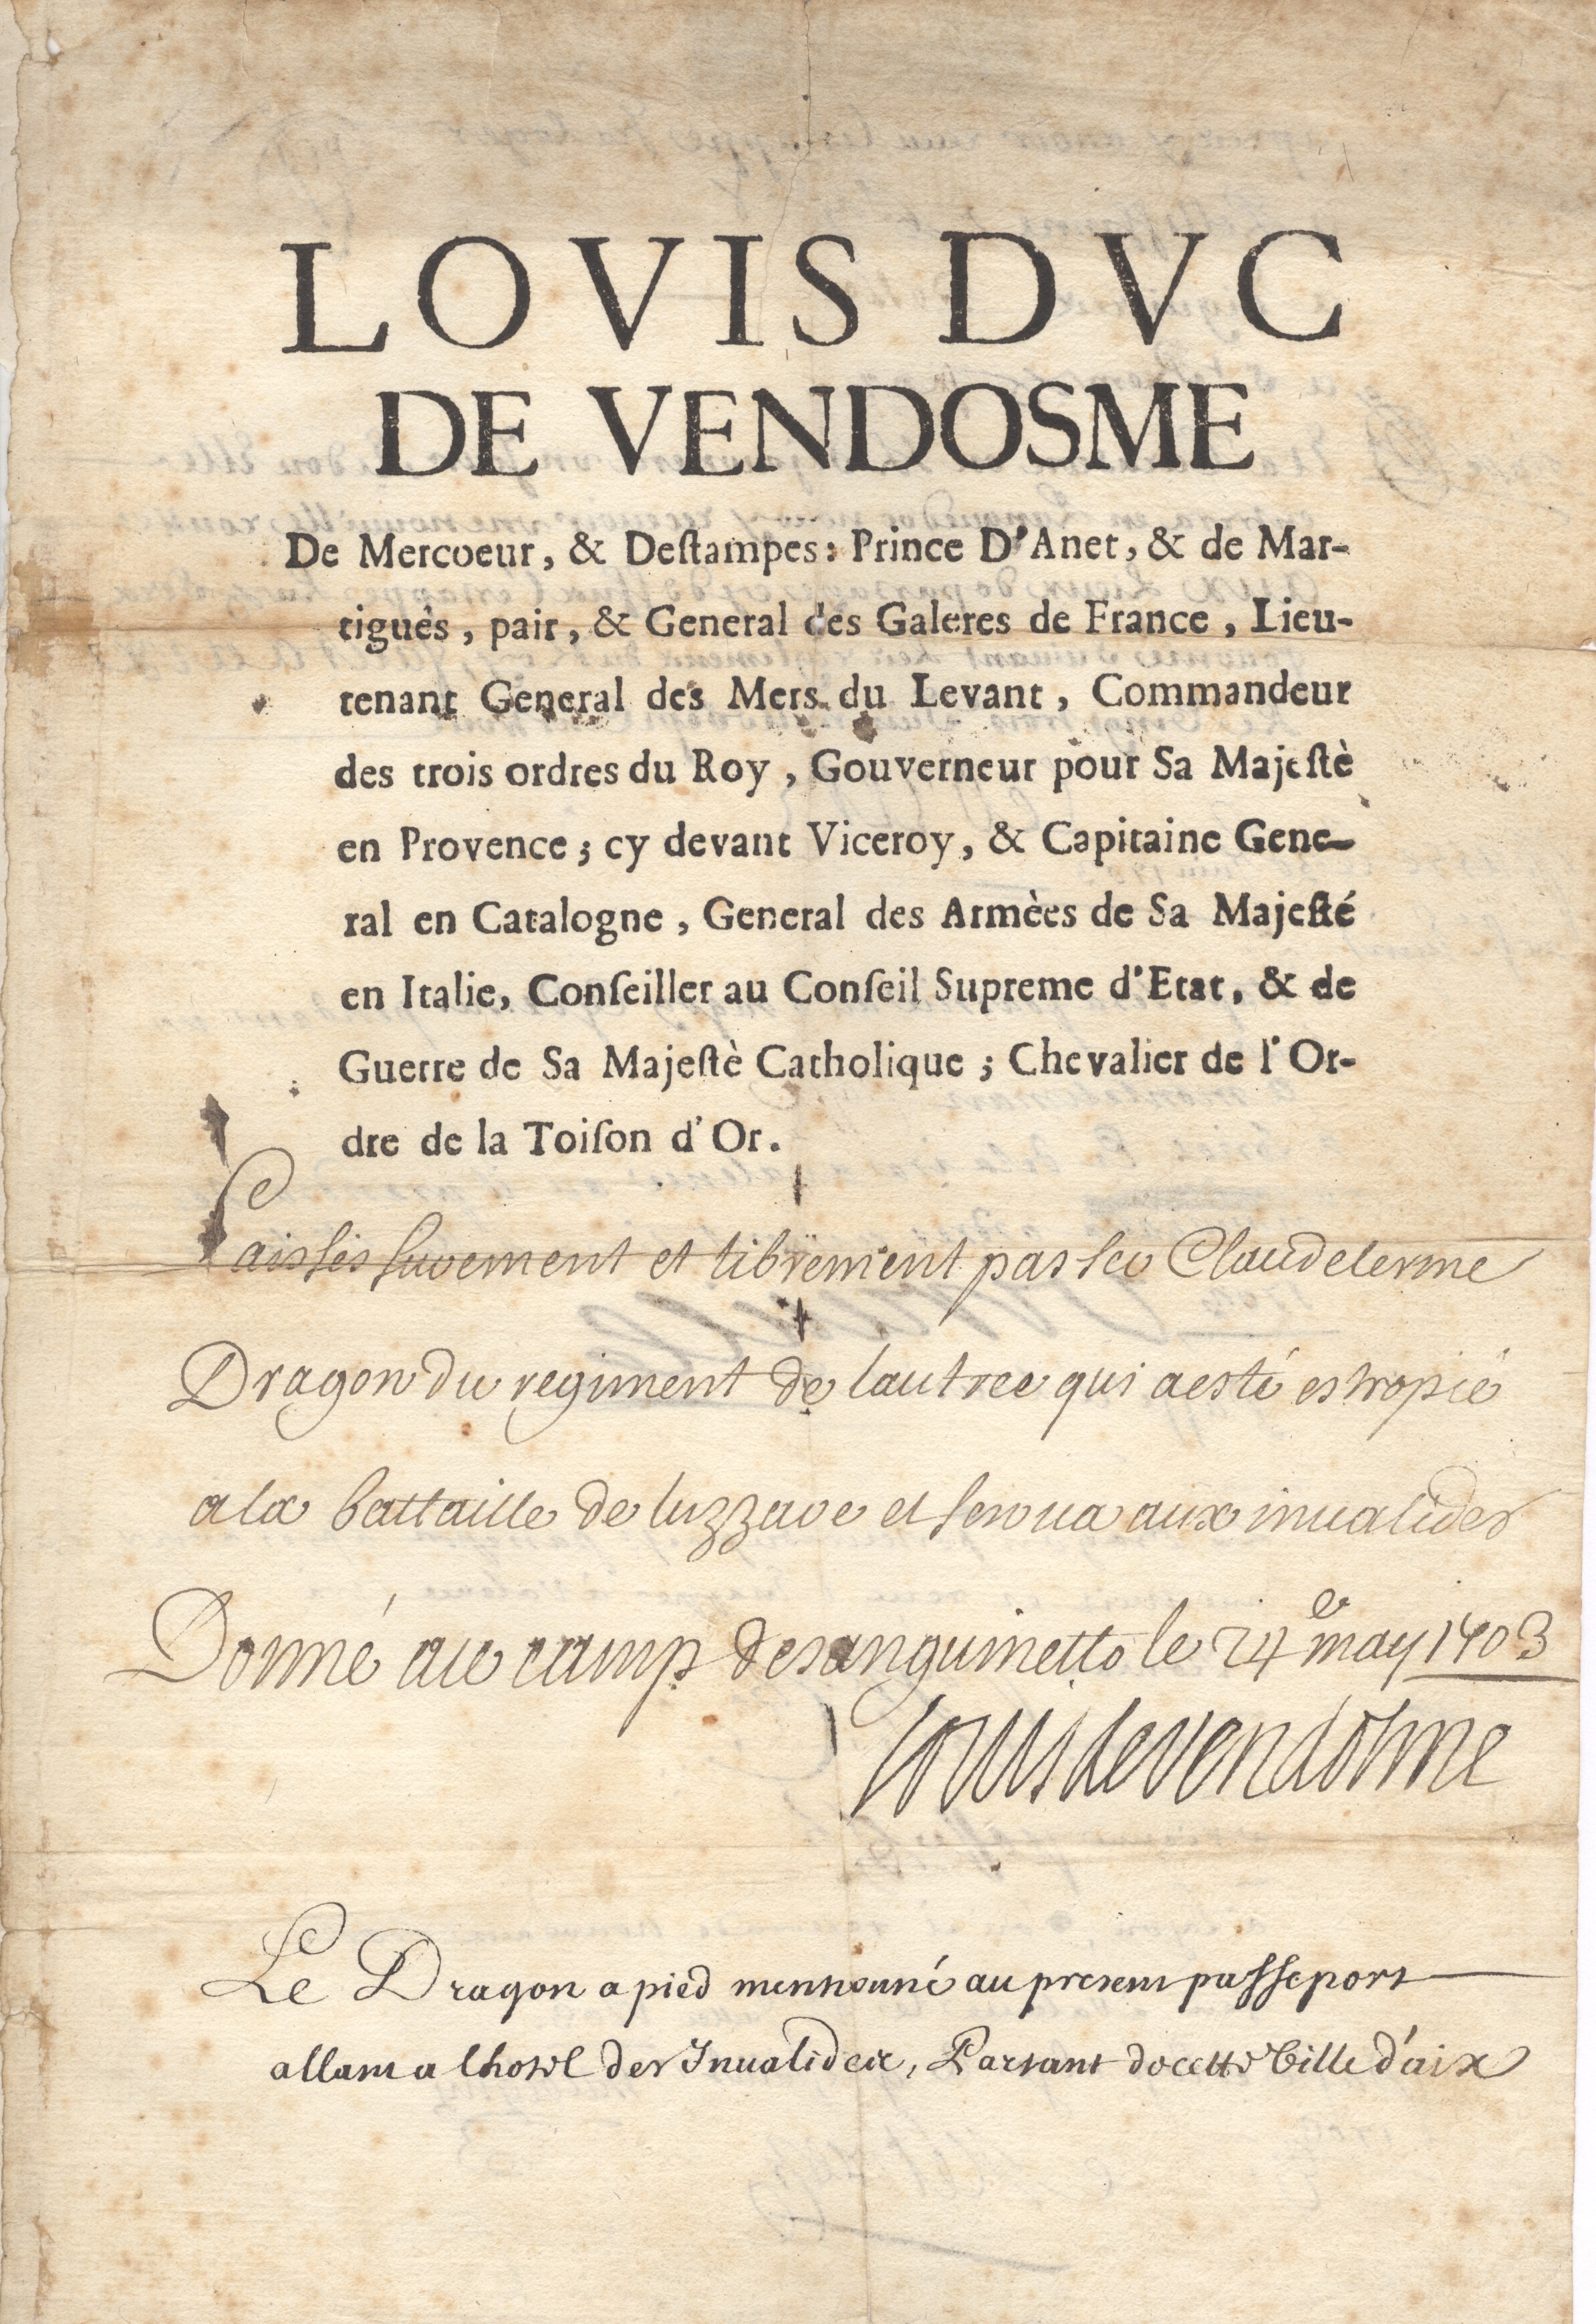 LOVIS DVC
DE VENDOSME
De Mercoeur, & Deſtampes: Prince D'Anet, & de Mar-
tiguès, pair, & General des Galeres de France, Lieu-
tenant General des Mers du Levant, Commandeur
des trois ordres du Roy, Gouverneur pour Sa Majeſtè
en Provence; cy devant Viceroy, & Capitaine Gene-
ral en Catalogne, General des Armèes de Sa Majeſté
en Italie, Conſeiller au Conſeil Supreme d'Etat, & de
Guerre de Sa Majeſtè Catholique; Chevalier de l'Or-
dre de la Toiſon d'Or.
Laissés surement et librement passer Claude
Dragon du regiment de lautrec qui a esté estropié
a la battaille de luzzare et sen va aux inualides
Donné au camp de sanguinetto le 24e may 1703
Louis de vendosme
Le Dragon a pied mentionné au present passeport
allant a lhotel des Inualides, Partant de cette Ville d'aix